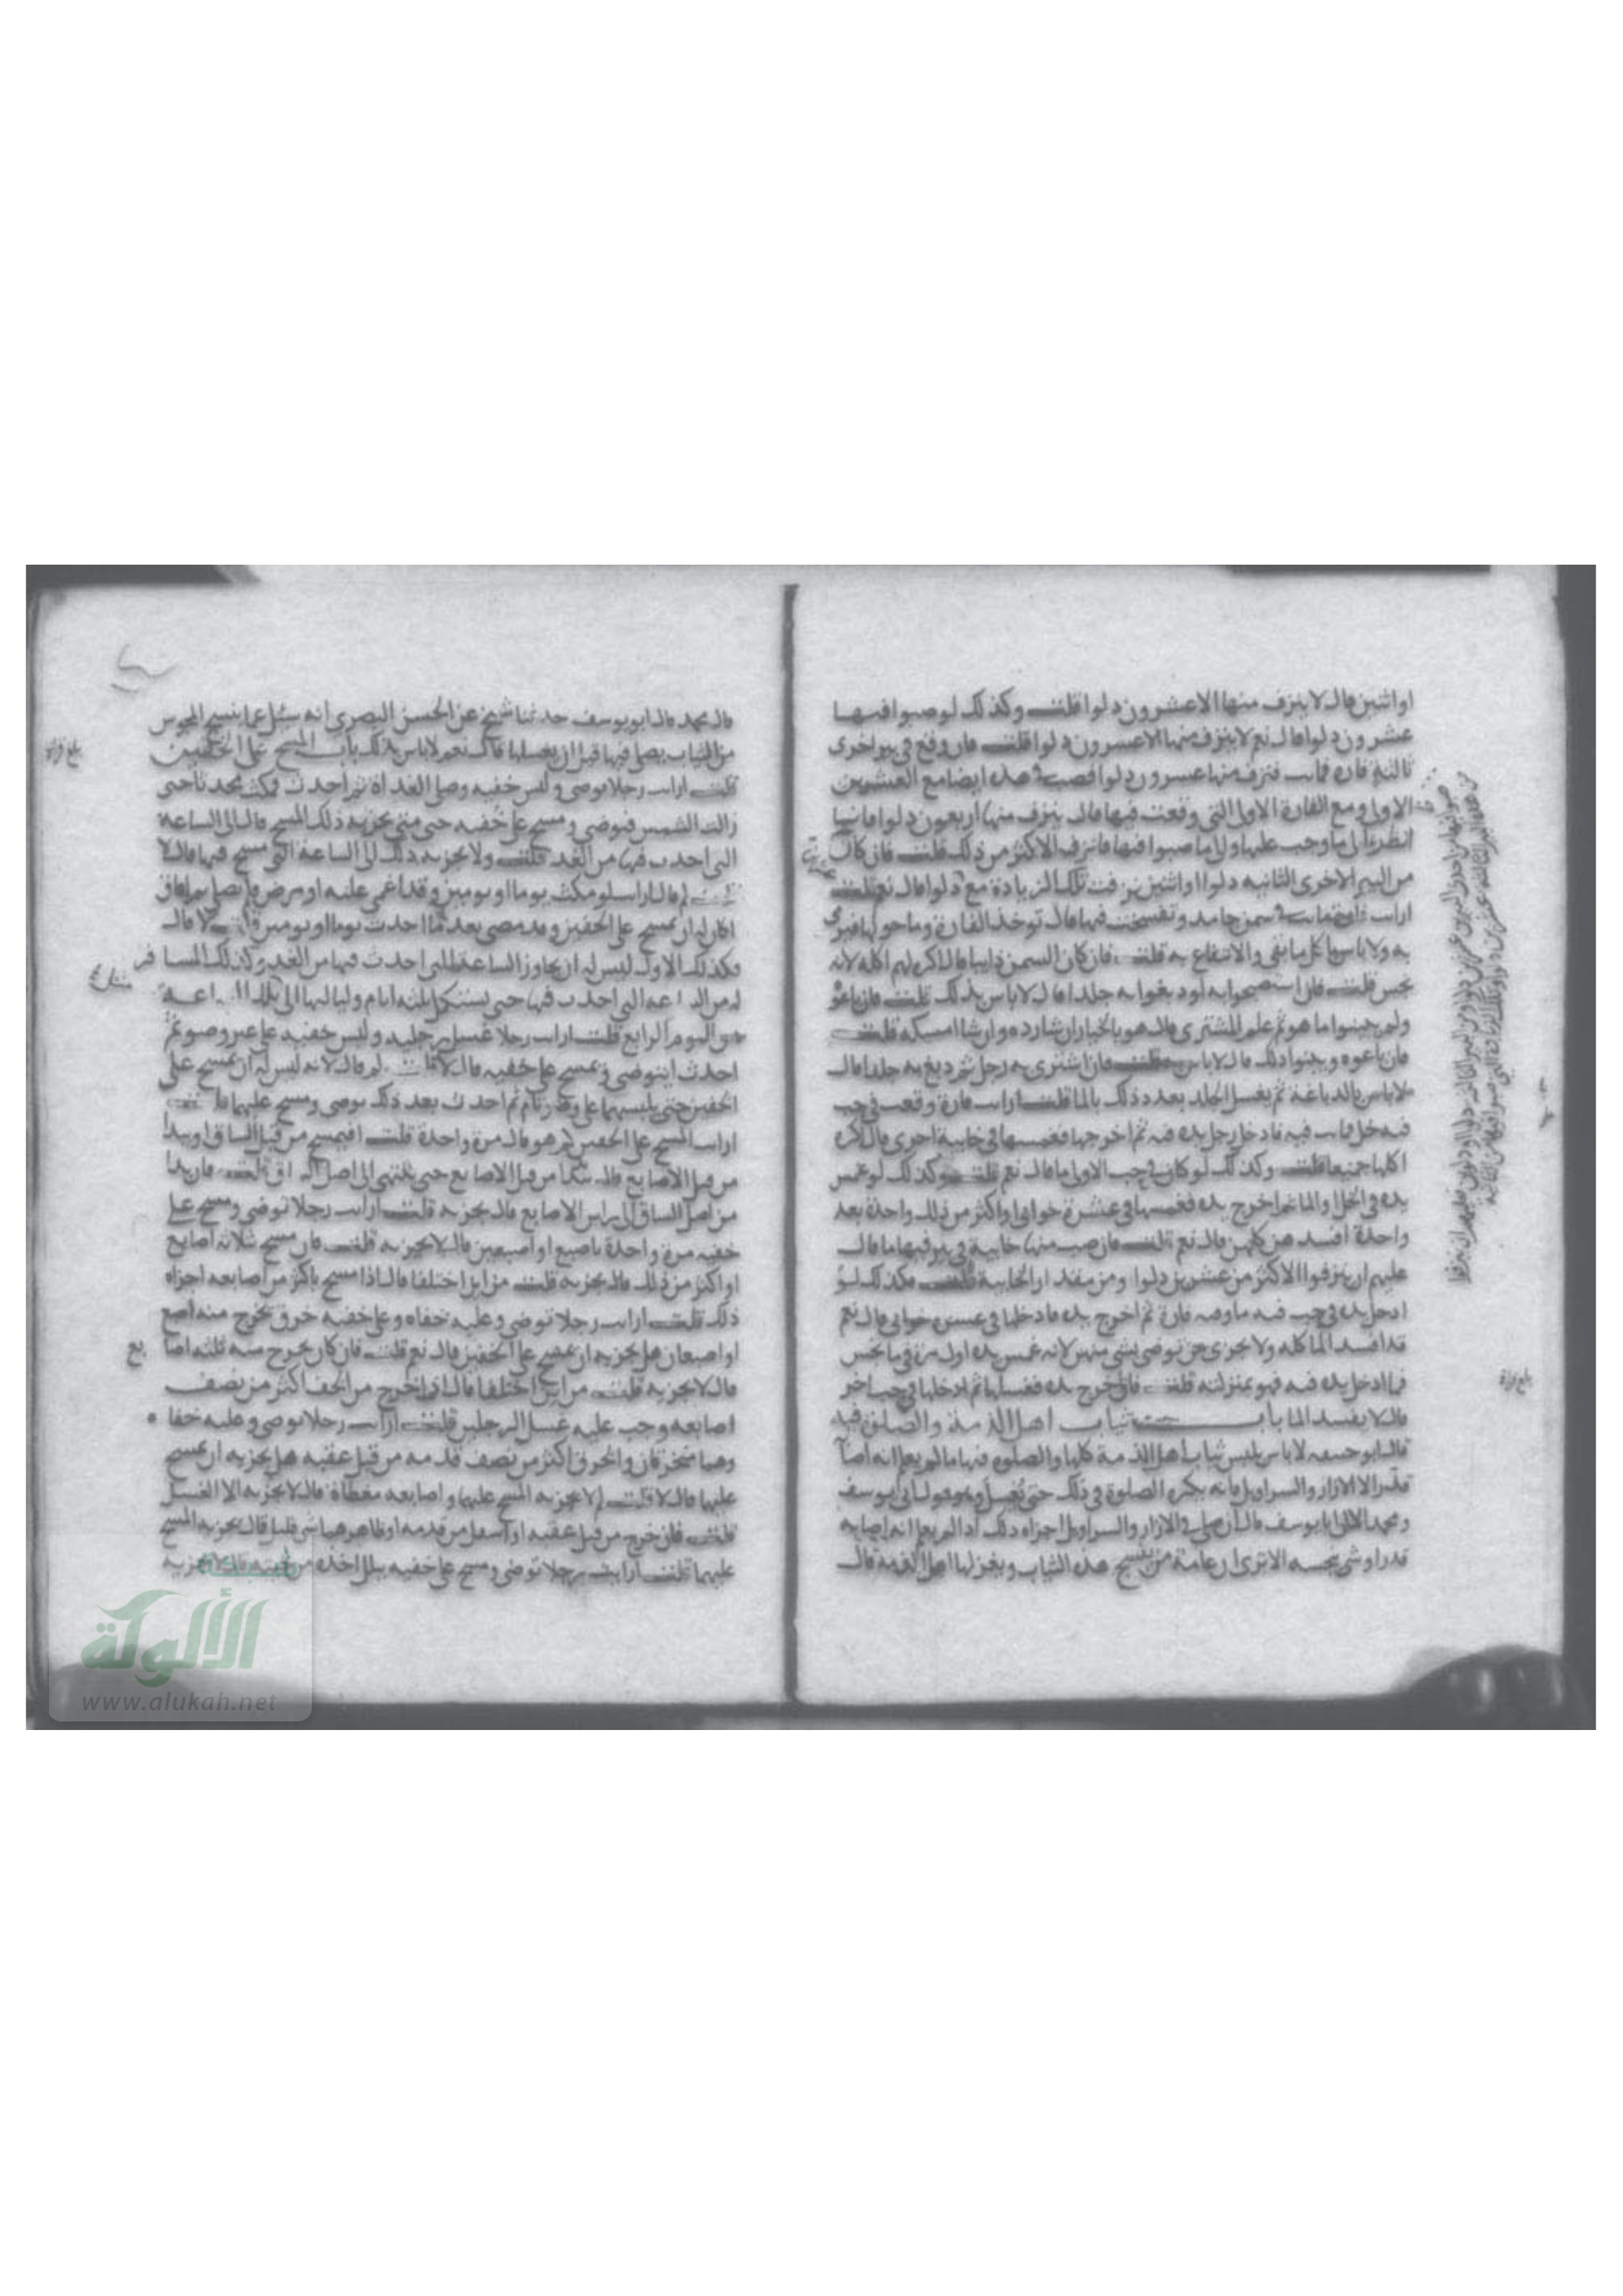 او اثنين قال لا ينزف منها الا عشرون دلوا قلت وكذلك لو صبوا فيها
عشرون دلوا قال نعم لا ينزف منها الا عشرون دلوا قلت فان وقع في بير اخرى
ثالثة فارة فماتت فنزف منها عشرون دلوا فصب في هذه ايضا مع العشرين
الاولى ومع الفارة الاولى التي وقعت فيها قال ينزف منها اربعون دلوا وانما
انظر الى ما وجب عليها والى ما صبوا فيها فانزف الاكثر من ذلك قلت فان كان
من البير الاخرى الثانية دلوا او اثنين نزفت تلك الزيادة مع دلوا قال نعم قلت
ارايت فارة ماتت في سمن جامد وتفسخت فيها قال توخذ الفارة وما حولها فيرمى
به ولا باس باكل ما بقي والانتفاع به قلت فان كان السمن ذايبا قال اكره لهم اكله لانه
نجس قلت فان استصبحوا به او دبغوا به جلدا قال لا باس بذلك قلت فان باعوه
ولم يبينوا ما هو ثم علم المشتري قال هو بالخيار ان شا رده وان شا امسكه قلت
فان باعوه وبينوا ذلك قال لا باس به قلت فان اشترى به رجل ثم دبغ به جلدا قال
لا باس بالدباغة ثم يغسل الجلد بعد ذلك بالما قلت ارايت فارة وقعت في حب
فيه خل فماتت فيه فادخل رجل يده فيه ثم اخرجها فغمسها في خابية اخرى قال اكره
اكلها جميعا قلت وكذلك لو كان في حب الاولى ما قال نعم قلت وكذلك لو غمس
يده في الخل والما ثم اخرج يده فغمسها في عشرة خوابي او اكثر من ذلك واحدة بعد
واحدة افسد هن كلهن قال نعم قلت فان صب منها خابية في بير فيها ما قال
عليهم ان ينزفوا الاكثر من عشرين دلوا ومن مقدار الخابية قلت فكذلك لو
ادخل يده في حب فيه ما وفيه فارة ثم اخرج يده فادخلها في عشر خوابي قال نعم
قد افسد الما كله ولا يجزى من توضى بشي منهن لانه غمس يده اول مرة في ما نجس
فما ادخل يده فيه فهو بمنزلته قلت فان اخرج يده فغسلها ثم ادخلها في حب اخر
قال لا يفسد الما باب ثياب اهل الذمة والصلوة فيه
قال ابو حنيفة لا باس بلبس ثياب اهل الذمة كلها والصلوة فيها ما لم يعلم انه اصابها
قذر الا الازار والسراويل فانه يكره الصلوة في ذلك حتى يغسل وهو قول ابي يوسف
ومحمد الا ان ابا يوسف قال ان صلى في الازار والسراويل اجزاه ذلك اذا لم يعلم انه اصابه
قذر او شي نجسه الا ترى ان عامة من ينسج هذه الثياب ويغزلها اهل الذمة قال
بلغ قراة
قال محمد قال ابو يوسف حدثنا شيخ عن الحسن البصري انه سئل عما ينسج المجوس
من الثياب يصلى فيها قبل ان يغسلها قال نعم لا باس بذلك باب المسح على الخفين
قلت ارايت رجلا توضى ولبس خفيه وصلى الغداة ثم احدث فمكث محدثا حتى
زالت الشمس فتوضى ومسح على خفيه حتى متى يجزيه ذلك المسح قال الى الساعة
التي احدث فيها من الغد قلت ولا يجزيه ذلك الى الساعة التي مسح فيها قال لا
قلت لم قال ارايت لو مكث يوما او يومين وقد اغمي عليه او مرض فلم يصل ثم افاق
اكان له ان يمسح على الخفين وقد مضى بعد ما احدث يوما او يومين قلت لا قال
فكذلك الاول ليس له ان يجاوز الساعة التي احدث فيها من الغد وكذلك المسافر
له من الساعة التي احدث فيها حتى يستكمل ثلثة ايام ولياليها الى تلك الساعة
من اليوم الرابع قلت ارايت رجلا غسل رجليه ولبس خفيه على غير وضو ثم
احدث ايتوضى ويمسح على خفيه قال لا قلت لم قال لانه ليس له ان يمسح على
الخفين حتى يلبسهما على وضو تام ثم احدث بعد ذلك توضى ومسح عليهما قلت
ارايت المسح على الخفين كم هو قال مرة واحدة قلت افيمسح من قبل الساق او يبدا
من قبل الاصابع قال يبدا من قبل الاصابع حتى ينتهي الى اصل الساق قلت فان بدا
من اصل الساق الى راس الاصابع قال يجزيه قلت ارايت رجلا توضى ومسح على
خفيه مرة واحدة باصبع او اصبعين قال لا يجزيه قلت فان مسح ثلاثة اصابع
او اكثر من ذلك قال يجزيه قلت من اين اختلفا قال اذا مسح باكثر من اصابعه اجزاه
ذلك قلت ارايت رجلا توضى وعليه خفاه وعلى خفيه خرق يخرج منه اصبع
او اصبعان هل يجزيه ان يمسح على الخفين قال نعم قلت فان كان يخرج منه ثلثة اصابع
قال لا يجزيه قلت من اين اختلفا قال اذا خرج من الخف اكثر من نصف
اصابعه وجب عليه غسل الرجلين قلت ارايت رجلا توضى وعليه خفا
وهما منخرقان والخرق اكثر من نصف قدمه من قبل عقبه هل يجزيه ان يمسح
عليهما قال لا قلت لم لا يجزيه المسح عليهما واصابعه مغطاة قال لا يجزيه الا الغسل
قلت فان خرج من قبل عقبه او اسفل من قدمه او ظاهرهما شي قليل قال يجزيه المسح
عليهما قلت ارايت رجلا توضى ومسح على خفيه ببلل اخذه من لحيته قال لا يجزيه
بلغ قراة
شبكة
الألوكة
www.alukah.net